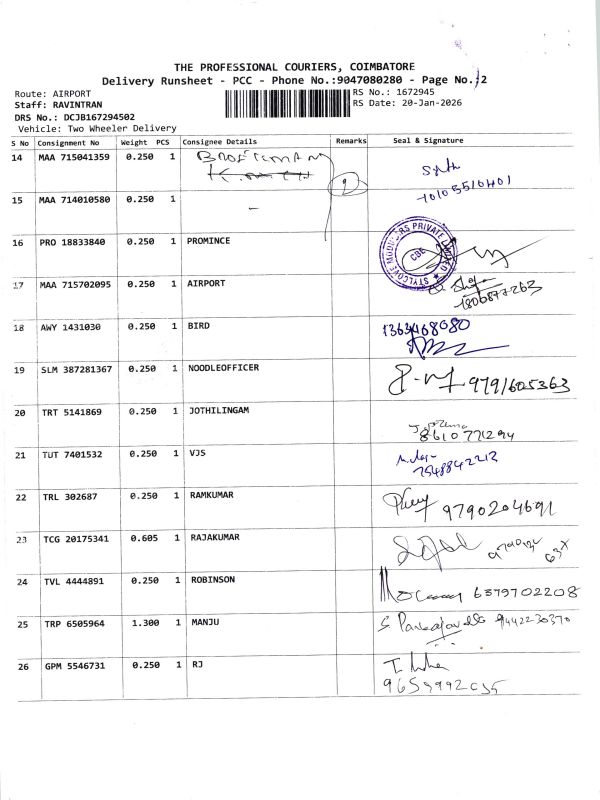 THE PROFESSIONAL COURIERS, COIMBATORE
Delivery Runsheet - PCC - Phone No.:9047080280 - Page No.:2
Route: AIRPORT
RS No.: 1672945
Staff: RAVINTRAN
RS Date: 20-Jan-2026
DRS No.: DCJB167294502
Vehicle: Two Wheeler Delivery
S No Consignment No Weight PCS Consignee Details Remarks Seal & Signature
14 MAA 715041359 0.250 1
15 MAA 714010580 0.250 1 -
16 PRO 18833840 0.250 1 PROMINCE
STYLCOVE PRIVATE LIMITED
CBE
17 MAA 715702095 0.250 1 AIRPORT
18 AWY 1431030 0.250 1 BIRD
19 SLM 387281367 0.250 1 NOODLEOFFICER 9791605363
20 TRT 5141869 0.250 1 JOTHILINGAM
8610771294
21 TUT 7401532 0.250 1 VJS
7548842212
22 TRL 302687 0.250 1 RAMKUMAR 9790204691
23 TCG 20175341 0.605 1 RAJAKUMAR
24 TVL 4444891 0.250 1 ROBINSON 6379702208
25 TRP 6505964 1.300 1 MANJU 9442230370
26 GPM 5546731 0.250 1 RJ